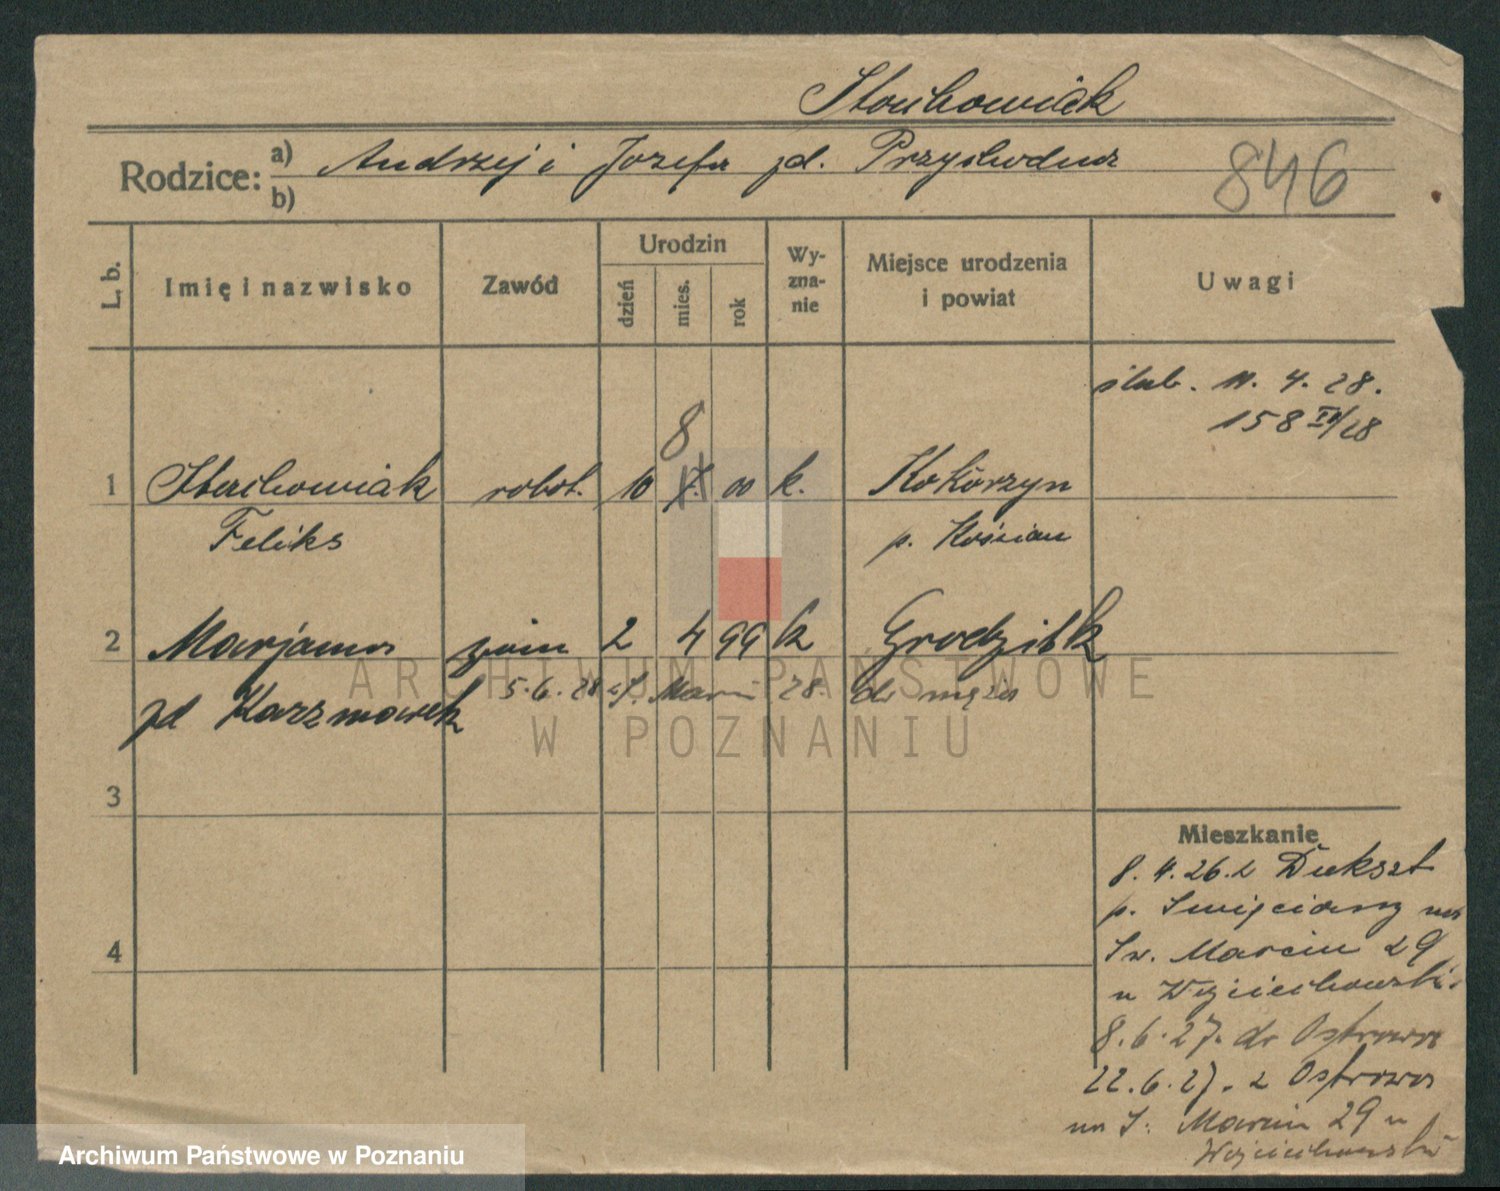 Stachowiak
Rodzice: a) Andrzej i Józefa zd. Przychodna 846
b)
L. b. Imię i nazwisko Zawód Urodzin dzień mies. rok Wy-zna-nie Miejsce urodzenia i powiat Uwagi
ślub. 11. 4. 28.
158 IV/28
8
1 Stachowiak robot. 10 00 k. Kokorzyn
Feliks p. Kościan
2 Marjanna 2 4 99 k Grodzisk
5.6.28 28. do męża
zd Kaczmarek
3
4
Mieszkanie
8. 4. 26. z Dukszt
p. Święciany na
Św. Marcin 29
u Wojciechowski.
8. 6. 27. do Ostrowa
22. 6. 27. z Ostrowa
na Ś. Marcin 29 u
Wojciechowski
ARCHIWUM PAŃSTWOWE
W POZNANIU
Archiwum Państwowe w Poznaniu